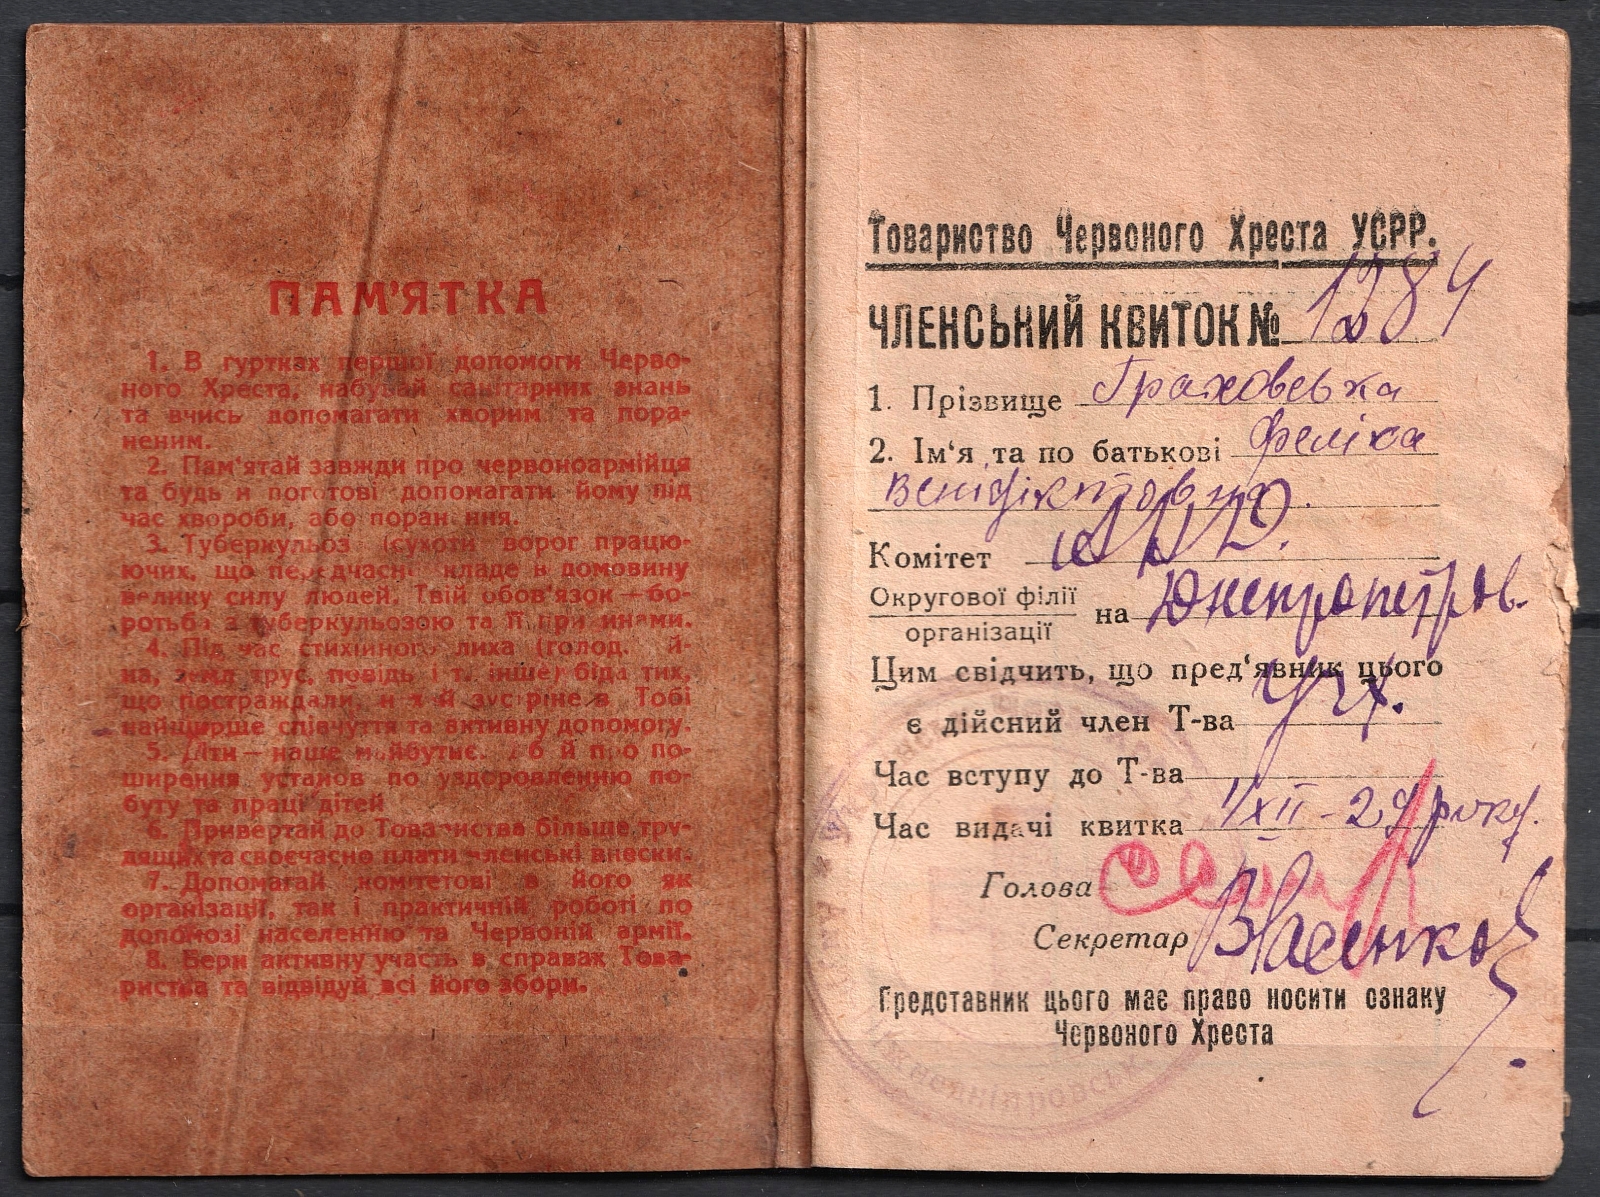 ПАМ'ЯТКА
1. В гуртках першої допомоги Черво-
ного Хреста, набувай санітарних знань
та вчись допомагати хворим та пора-
неним.
2. Пам'ятай завжди про червоноармійця
та будь н поготові допомагати йому під
час хвороби, або поран ння.
3. Туберкульоз (сухоти ворог працю-
ючих, що передчасно кладе в домовину
велику силу людей. Твій обов'язок — бо-
ротьба з туберкульозою та її при инами.
4. Під час стихійного лиха (голод, й-
на, земл трус, повідь і т. інше) біда тих,
що постраждали, н х й зустріне в Тобі
найщирше співчуття та активну допомогу.
5. Діти — наше майбутнє. б й про по-
ширення установ по уздоровленню по-
буту та праці дітей
6. Привертай до Товариства більше тру-
дящих та своєчасно плати членські внески.
7. Допомагай комітетові в його як
організації, так і практичній роботі по
допомозі населенню та Червоній армії.
8. Бери активну участь в справах Това-
риства та відвідуй всі його збори.
Товариство Червоного Хреста УСРР.
ЧЛЕНСЬКИЙ КВИТОК № 1284
1. Прізвище Граховська
2. Ім'я та по батькові Феліка
Венідіктовна.
Комітет
Округової філії
організації
на Днепропетров.
Цим свідчить, що пред'явник цього
є дійсний член Т-ва УЧХ.
Час вступу до Т-ва
Час видачі квитка 1/XII - 29 року.
Голова
Секретар Власенко
Представник цього має право носити ознаку
Червоного Хреста